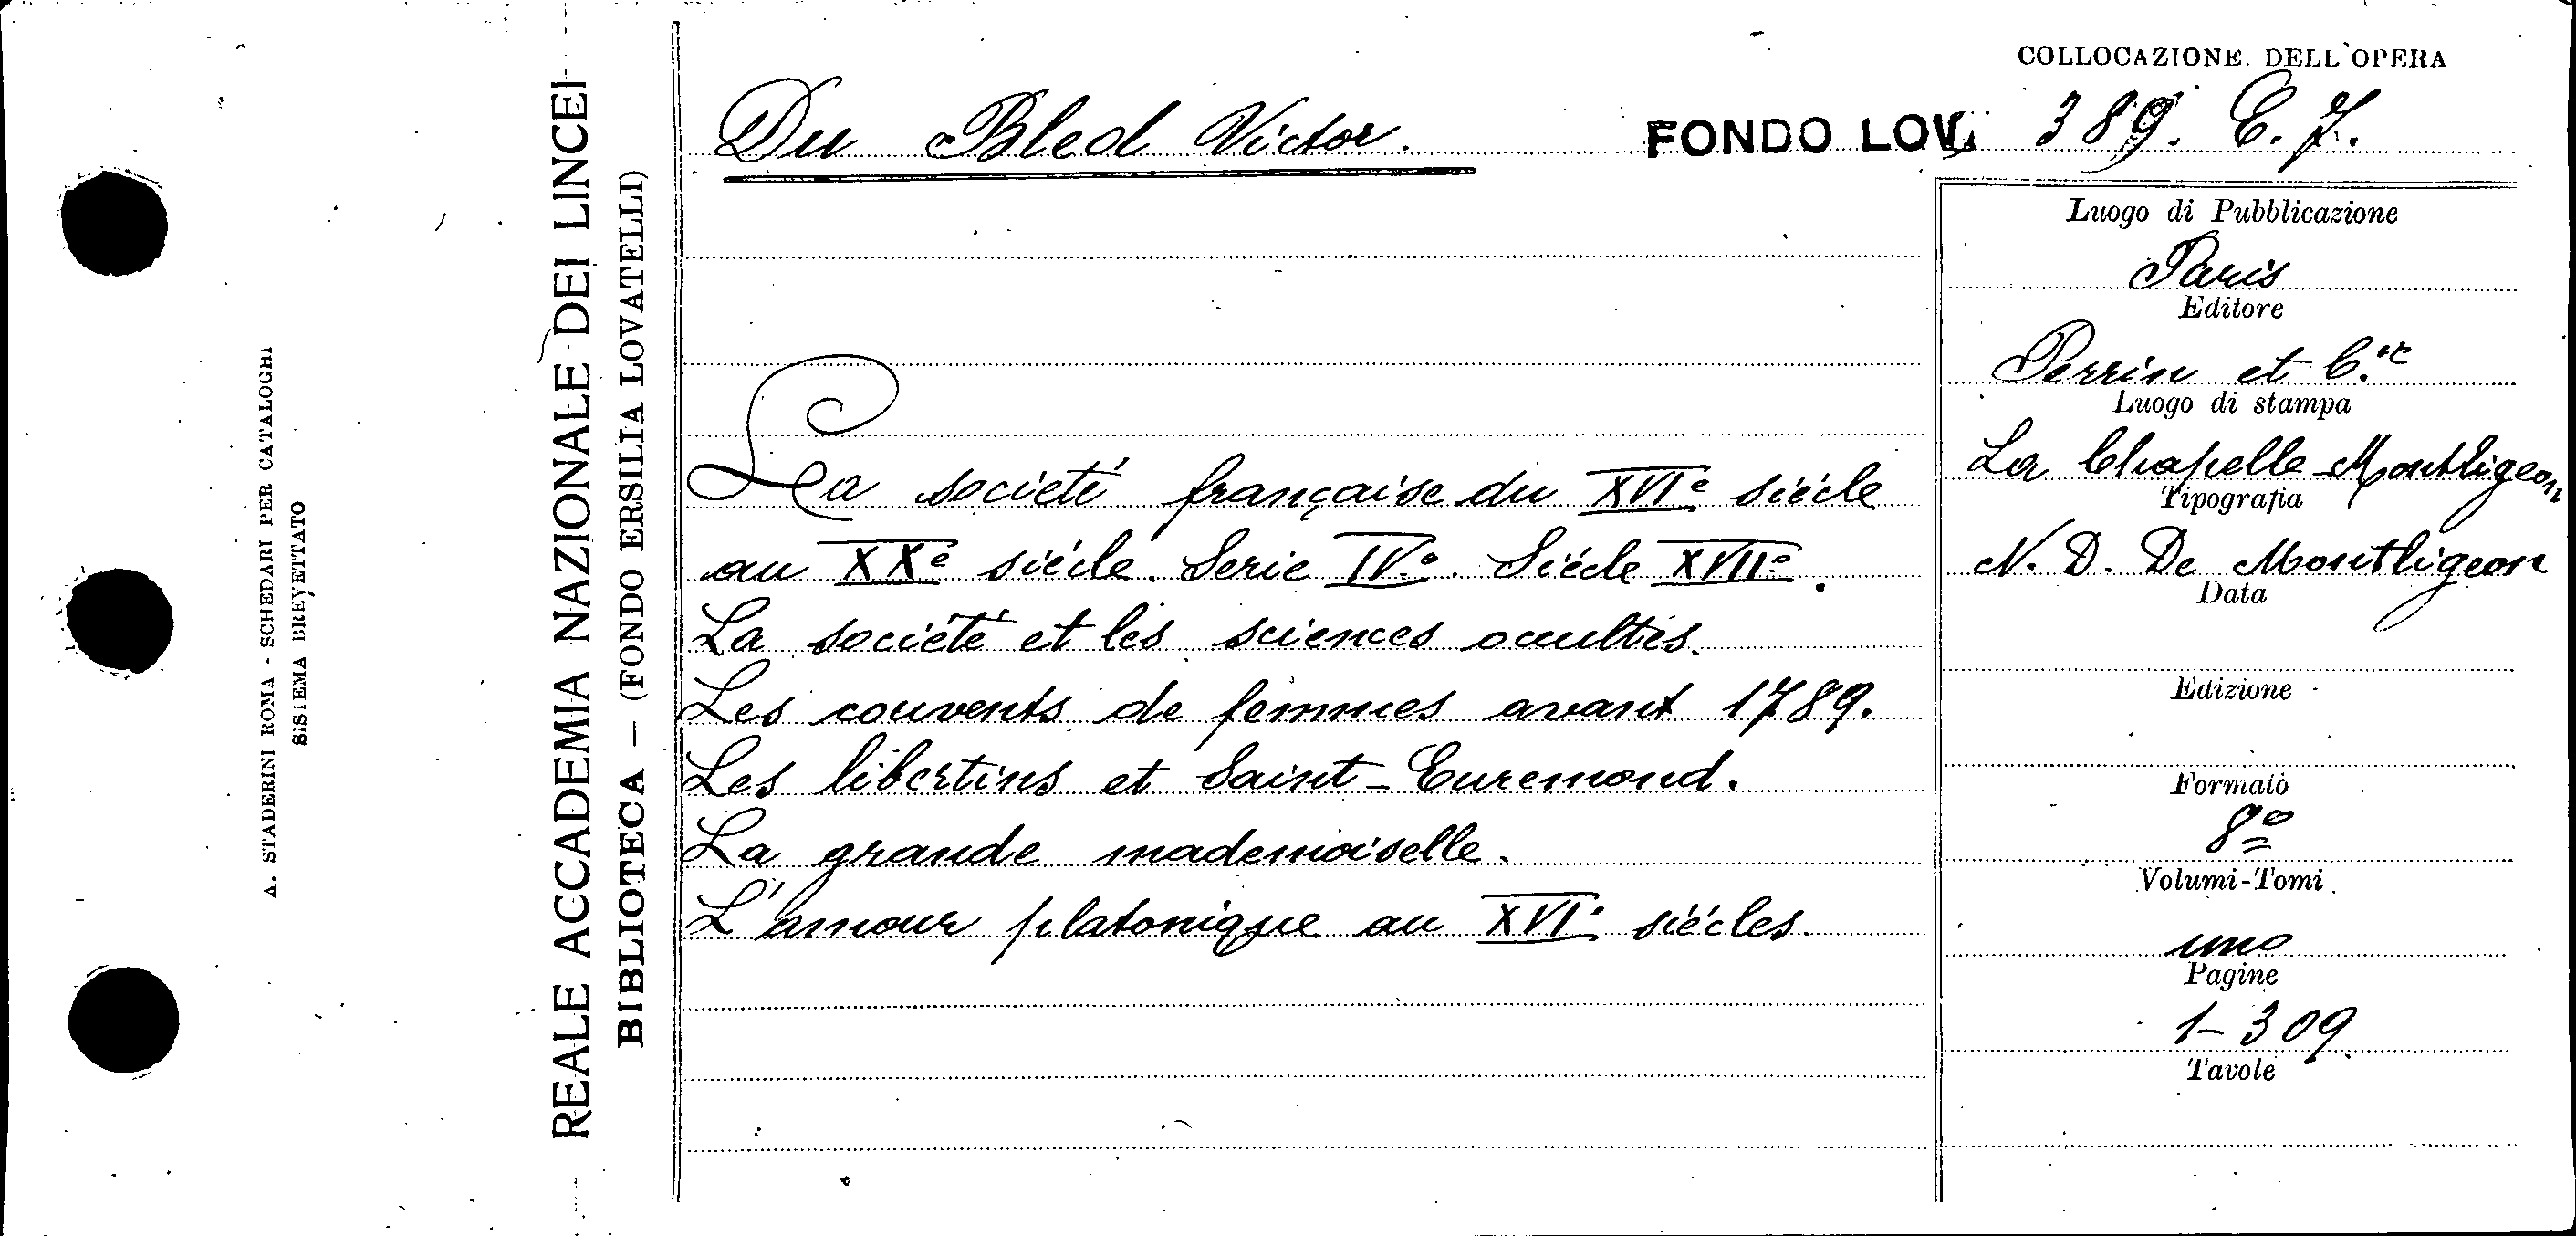 A. STADERINI ROMA - SCHEDARI PER CATALOGHI
SISTEMA BREVETTATO
REALE ACCADEMIA NAZIONALE DEI LINCEI
BIBLIOTECA — (FONDO ERSILIA LOVATELLI)
COLLOCAZIONE DELL'OPERA
Du Bled Victor. FONDO LOV. 389. C. 7.
La societé française du XVIe siécle
au XXe siécle. Serie IVo. Siécle XVIIo.
La société et les sciences occultes.
Les couvents de femmes avant 1789.
Les libertins et Saint-Euremond.
La grande mademoiselle.
L'amour platonique au XVIe siécles.
Luogo di Pubblicazione
Paris
Editore
Perrin et C.ie
Luogo di stampa
La Chapelle-Montligeon
Tipografia
N. D. De Montligeon
Data
Edizione
Formato
8o
Volumi-Tomi
uno
Pagine
1-309.
Tavole